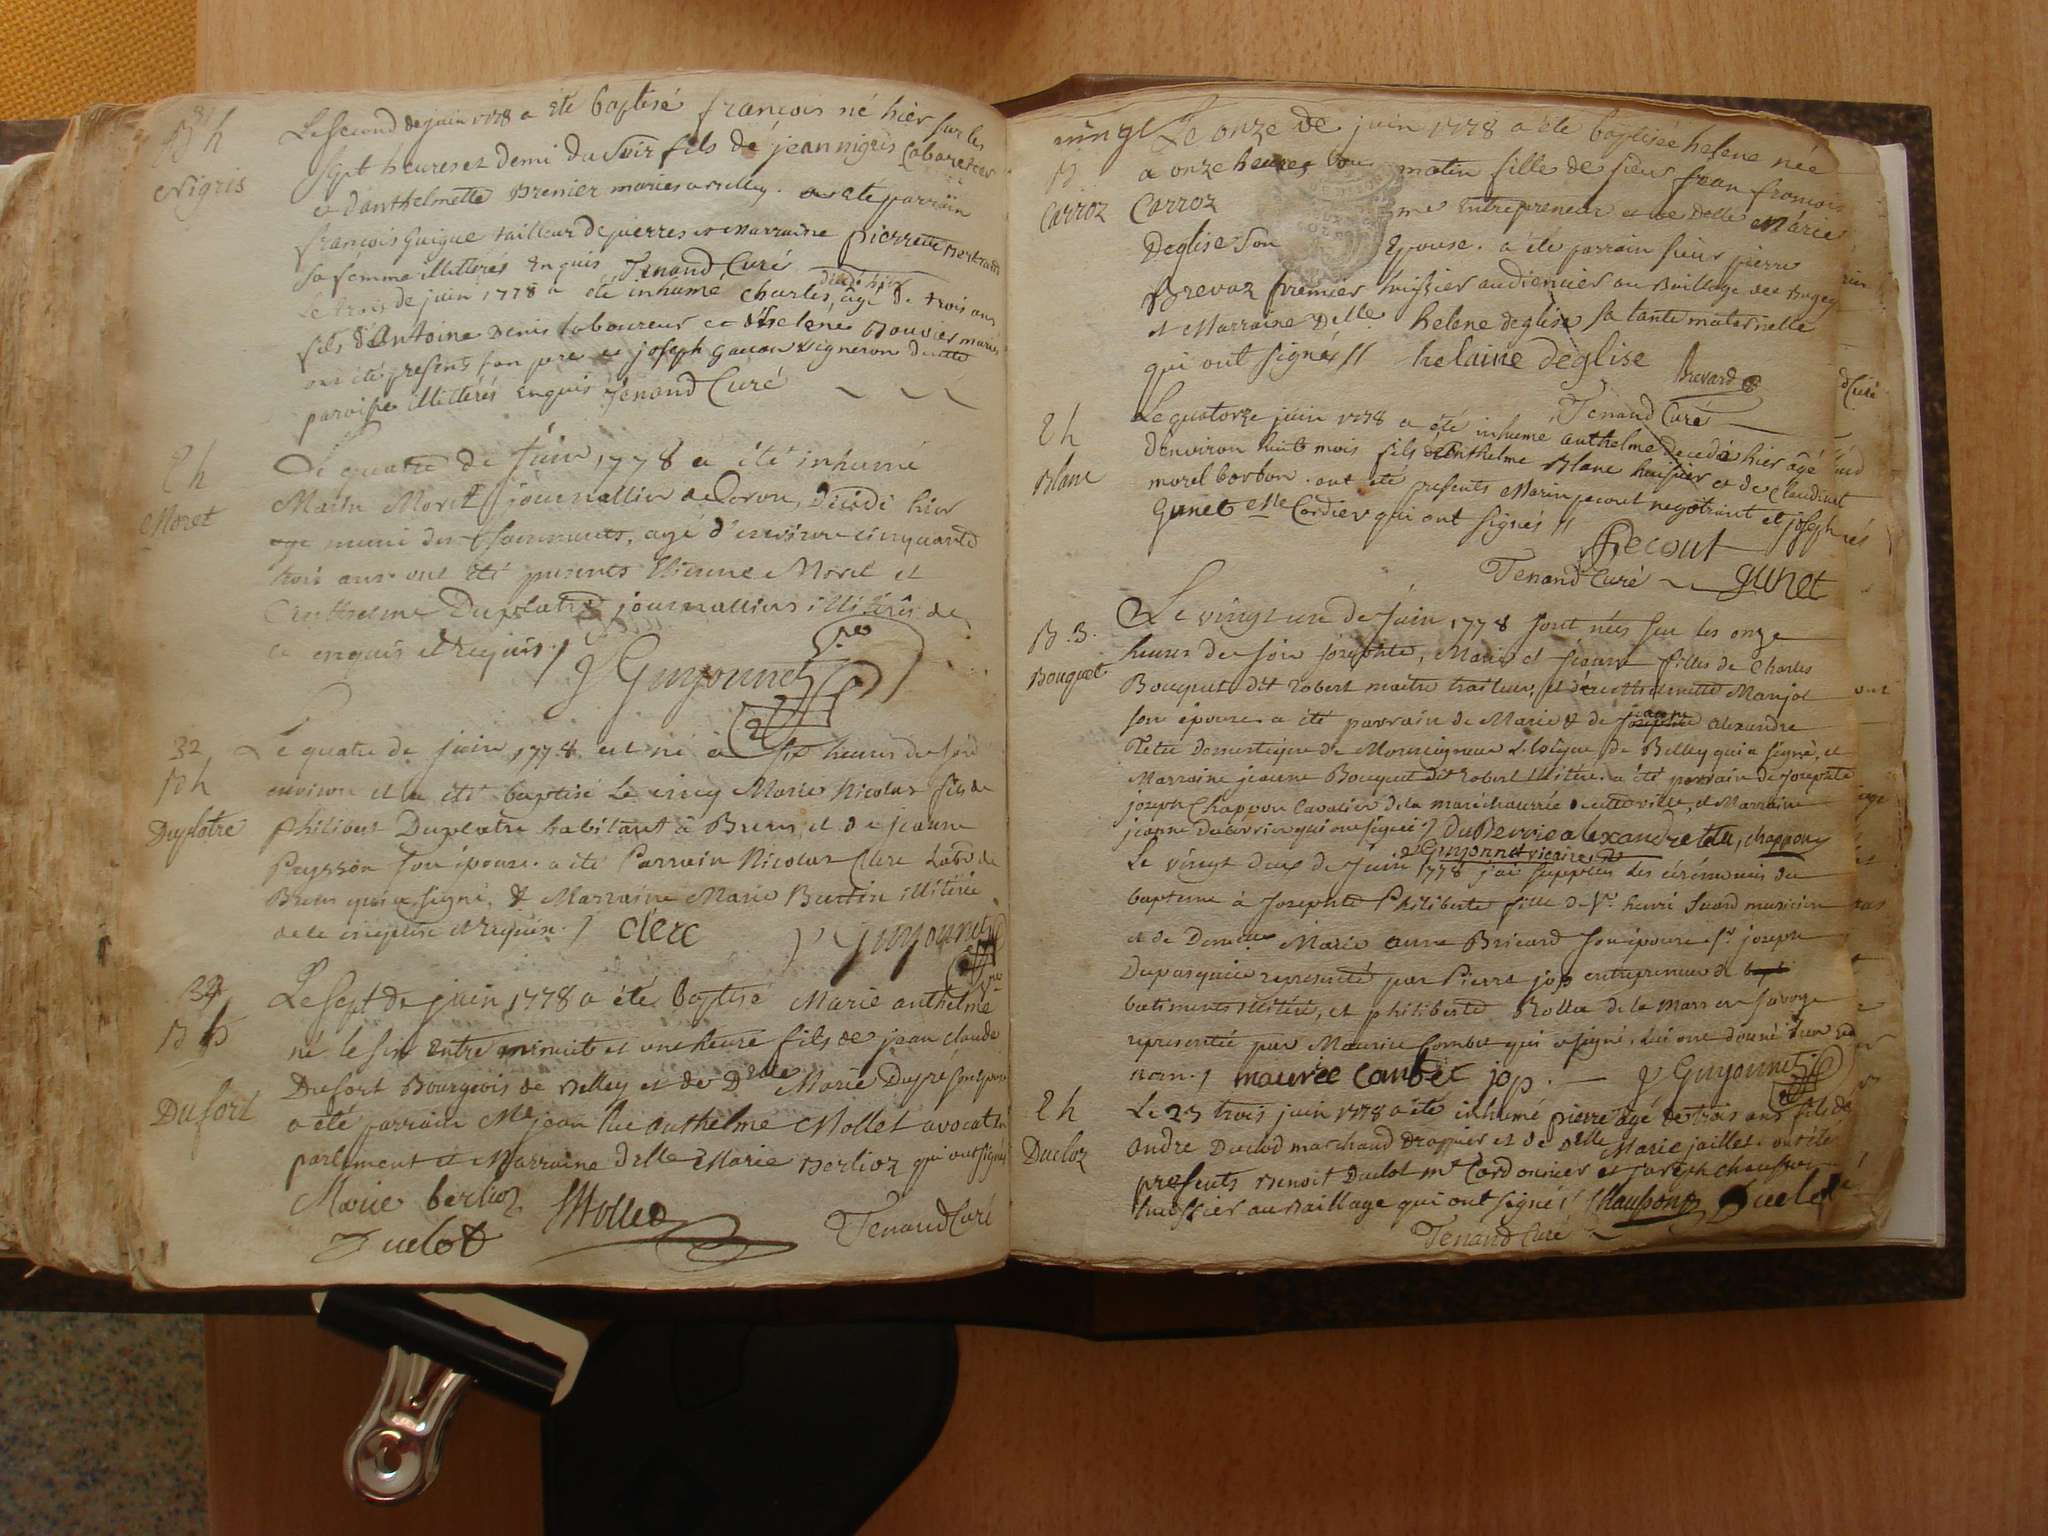 31
B h
Nigris
Le second de juin 1778 a été baptisé françois né hier sur les
sept heures et demi du soir fils de jean nigris Cabaretier
et d'anthelmette Premier mariés a Belley. a été parrain
françois Guigue tailleur de pierres et Marraine pierrette Bertrand
sa femme illitérés enquis Tenand Curé
Le trois de juin 1778 a été inhumé Charles, décédé hier âgé de trois ans
fils d'Antoine Denis laboureur et d'helené Bouvier mariés
ont été presents son pere et joseph vigneron de cette
paroisse illitérés enquis Tenand Curé
S h
Moret
Le quatre de Juin 1778 a été inhumé
Moret journallier décédé hier
age muni des Sacrements, agé d'environ cinquante
trois ans. ont été presents Etienne Moret et
Anthelme Duplatre journalliers illitérés de
ce enquis et requis. / J Guyonnet v.re
32
B h
Duplatre
Le quatre de juin 1778 est né à six heures du soir
environ et a été baptisé le cinq Marie Nicolas fils de
Philibert Duplatre habitant à Brens et de jeanne
Peysson son épouse. a été Parrain Nicolas Clerc Lab.r de
Brens qui a signé, & Marraine Marie Burtin illitérée
de ce enquise et requise. / clerc J Guyonnet v.re
33
B h
Dufort
Le sept de juin 1778 a été baptisé Marie anthelme
né le soir entre minuit et une heure fils de jean claude
Dufort Bourgeois de Belley et de Delle Marie son épouse
a été parrain Me jean luc anthelme Mollet avocat au
parlement et Marraine delle Marie Berlioz qui ont signés
Marie berlioz Mollet Tenand Curé
Duclot
vingt
B
Carroz
Le onze de juin 1778 a été baptisée helene née
a onze heures du matin fille de sieur jean françois
Carroz entrepreneur et de Delle Marie
Deglise son Epouse. a été parrain sieur pierre
Brevaz premier huissier audiencier au Baillage de Bugey
et Marraine Delle helene deglise sa tante maternelle
qui ont signés // helaine deglise Brevard
Tenand Curé
S h
Blanc
Le quatorze juin 1778 a été inhumé anthelme decedé hier âgé
d'environ huit mois fils d'Anthelme Blanc huissier et de Claudine
morel borbon. ont été presents Marin pecout negotiant et joseph
Gunet Me Cordier qui ont signés //
Pecout
Tenand Curé Gunet
B. 3.
Bouquet
Le vingt un de Juin 1778 sont nées sur les onze
heures du soir josephte, Marie et jeanne filles de Charles
Bouquet dit robert maitre traiteur, et d'anthelmette Manjot
son épouse. a été parrain de Marie & de jeanne alexandre
Tetu domestique de Monseigneur L'évêque de Belley qui a signé, et
Marraine jeanne Bouquet dit robert illitérée. a été parrain de josephte
joseph Chappon Cavalier de la maréchaussée de cette ville, et Marraine
jeanne qui ont signé. / alexandre tetu, chappon
J Guyonnet vicaire
Le vingt deux de Juin 1778 j'ai supplée les cérémonies du
bapteme à Josephte Philiberte fille de Sr. henri Suard musicien
et de Demelle Marie anne Bricard son épouse. Sr. joseph
Dupasquier representé par Pierre jop entrepreneur de
batiments illitéré, et philiberte Rollin de la Mar en Savoye
representée par Maurice Combet qui a signé. lui ont donné leur
nom. / maurice combet jop. J Guyonnet
S h
Ducloz
Le 23 trois juin 1778 a été inhumé pierre agé de trois ans fils de
andre Duclod marchand Drappier et de Delle Marie jaillet. ont été
presents Benoit Duclot Me Cordonnier et joseph Chausson
huissier au Baillage qui ont signés / Chausson Duclot
Tenand Curé